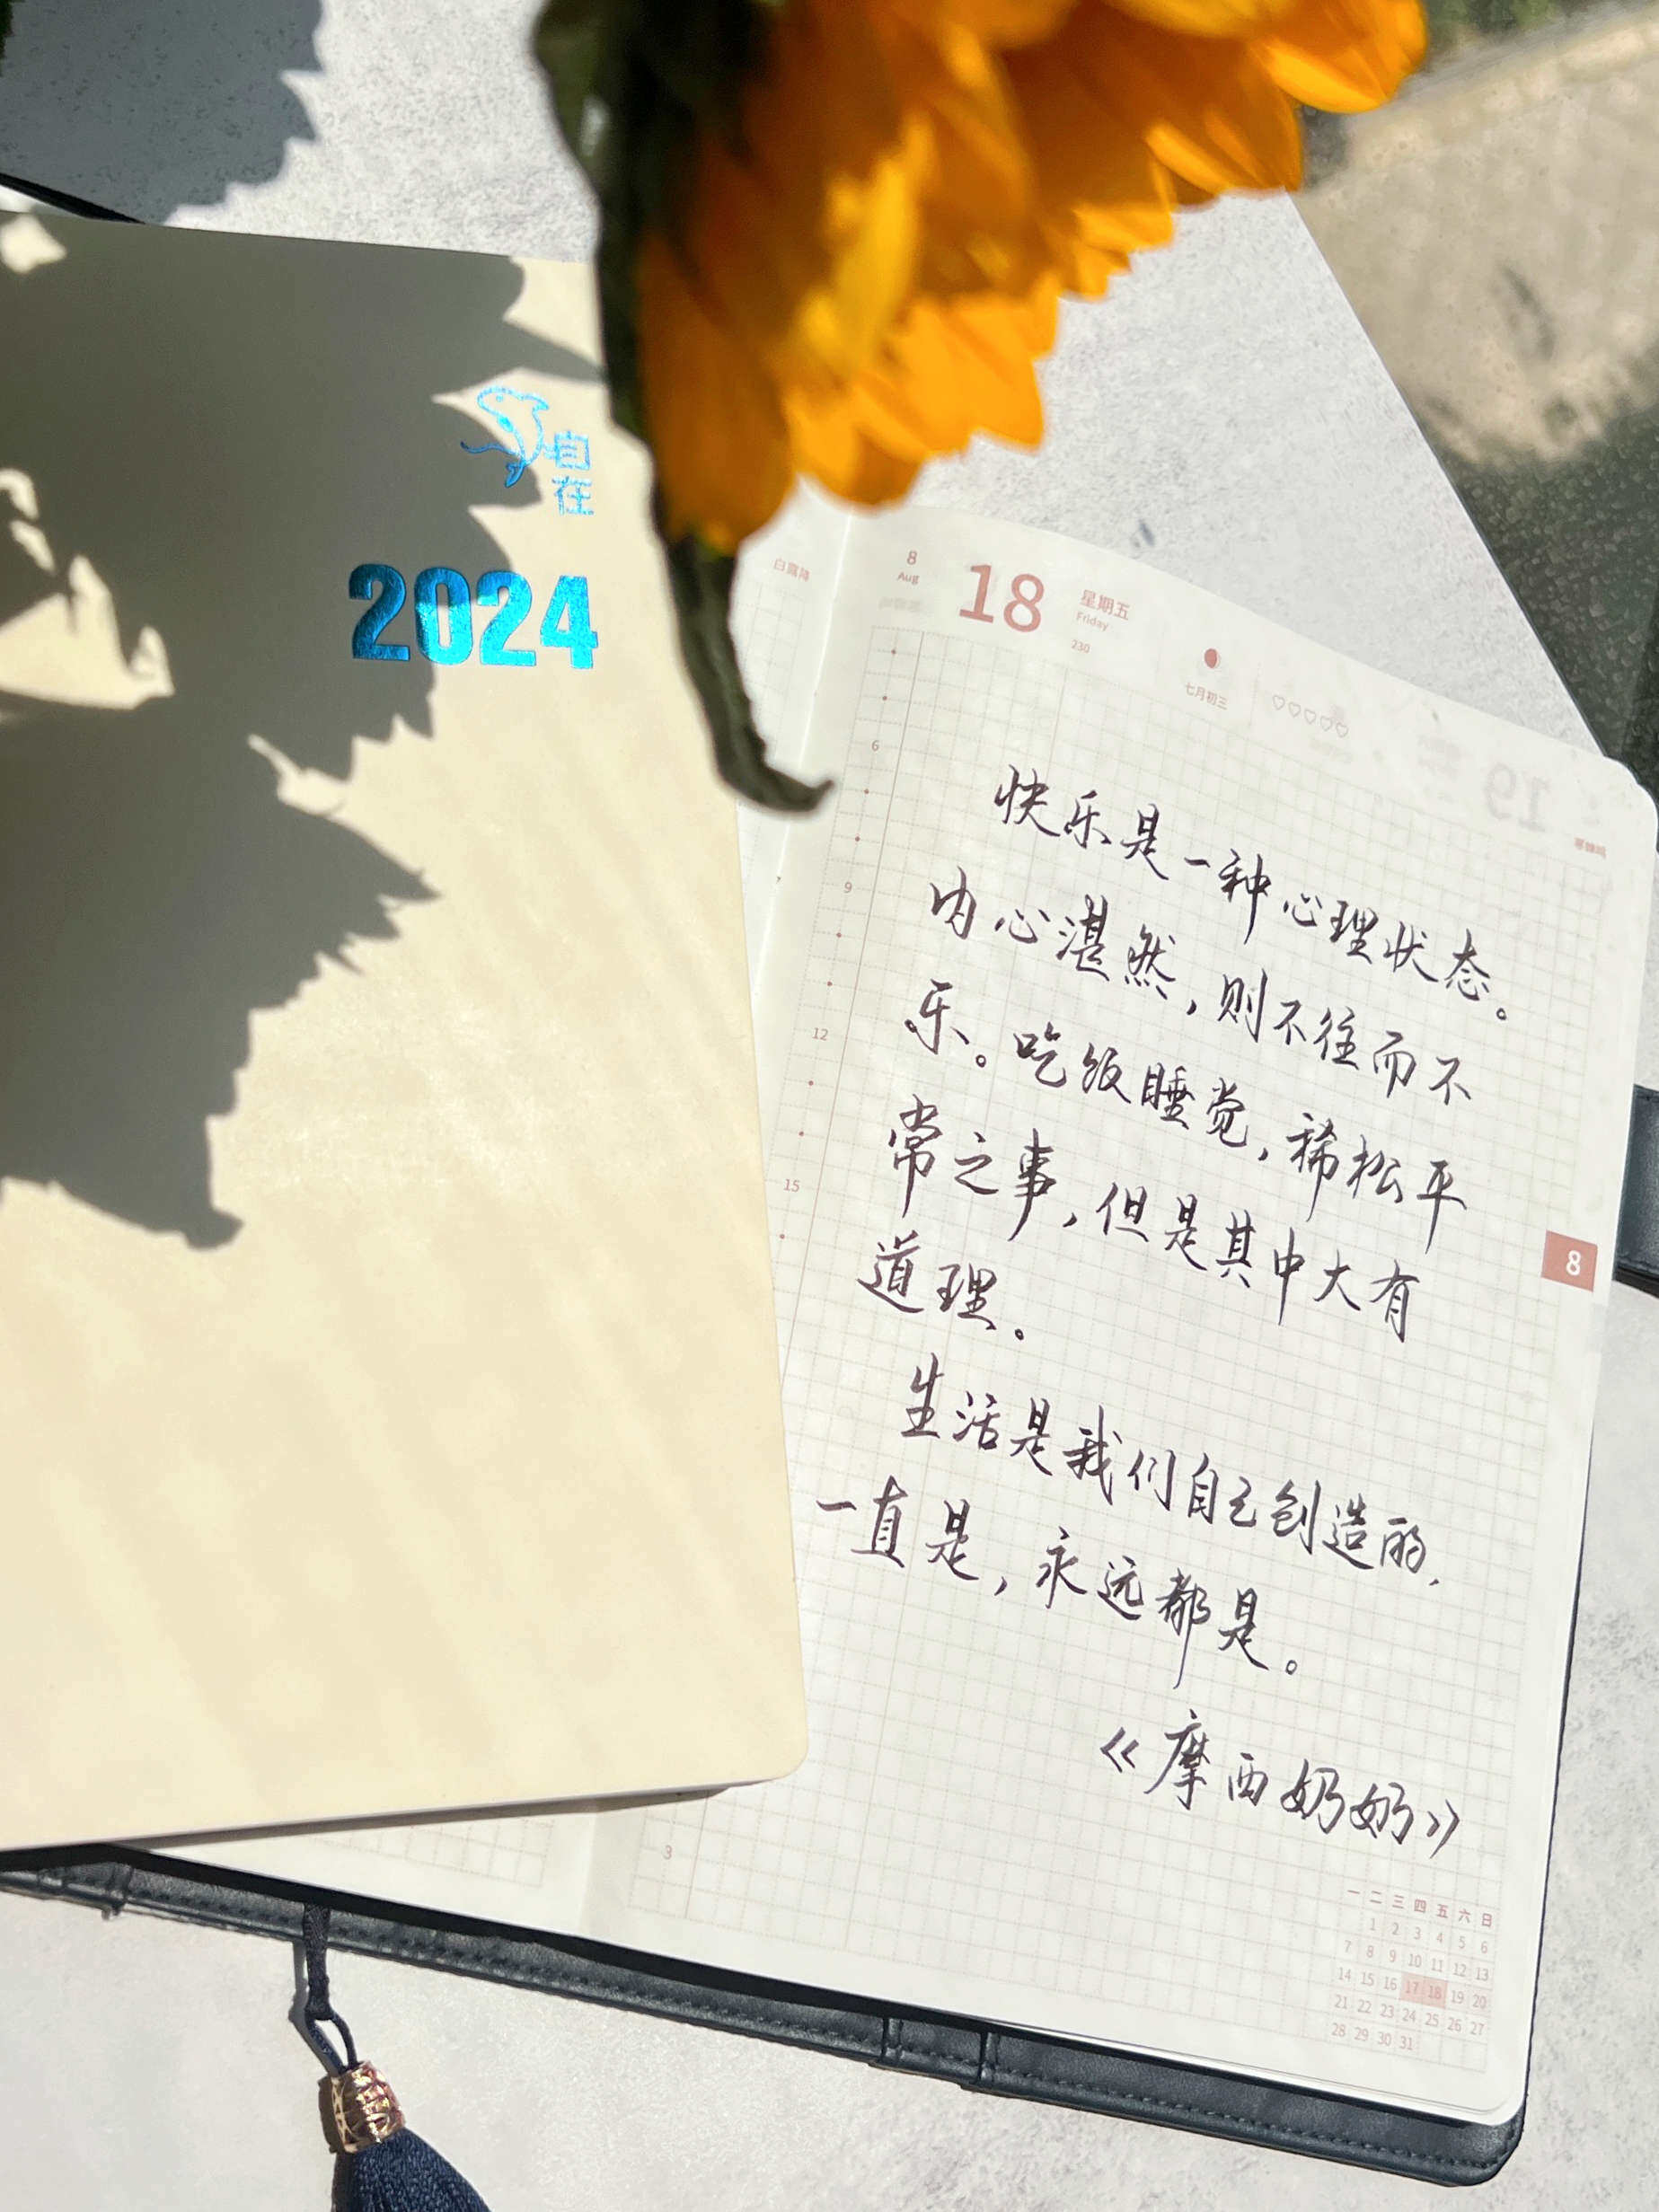 自在
2024
白露降
8
Aug
18
星期五
Friday
230
七月初三
♡♡♡♡♡
19
6
9
12
15
3
快乐是一种心理状态。
内心湛然，则不往而不
乐。吃饭睡觉，稀松平
常之事，但是其中大有
道理。
生活是我们自己创造的，
一直是，永远都是。
《摩西奶奶》
8
一 二 三 四 五 六 日
1 2 3 4 5 6
7 8 9 10 11 12 13
14 15 16 17 18 19 20
21 22 23 24 25 26 27
28 29 30 31